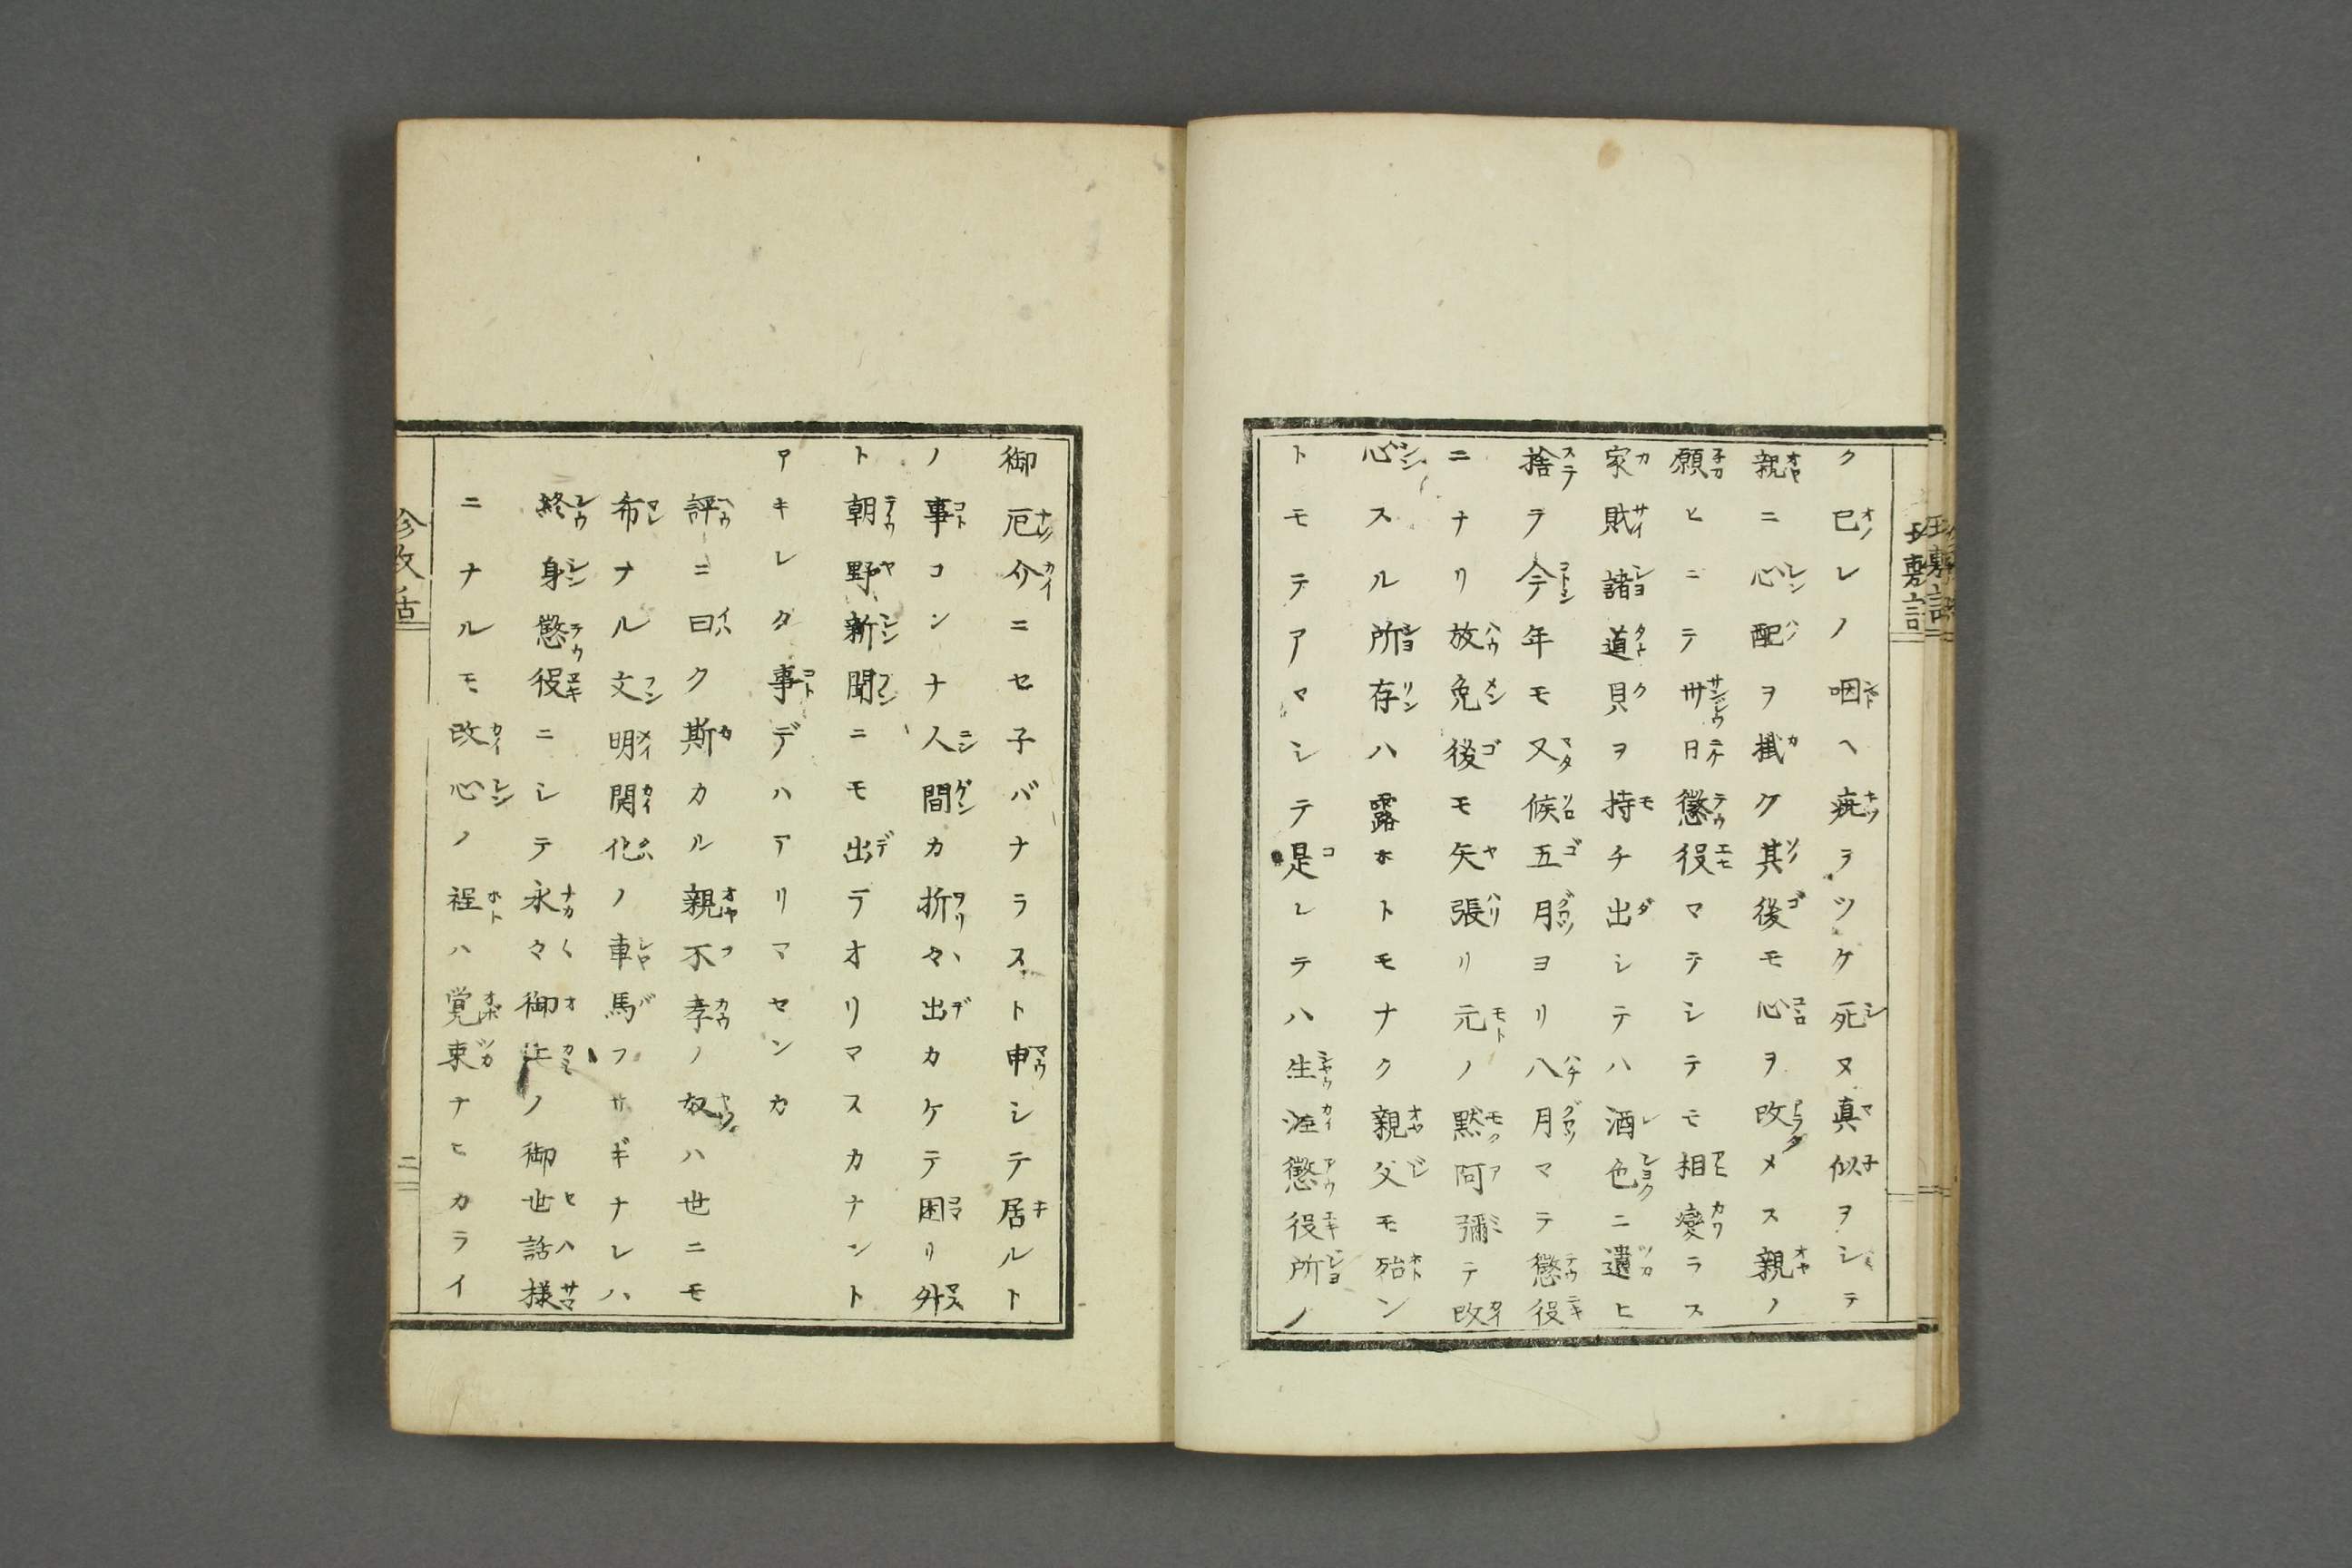 ク巳レノ咽ヘ疵ヲツケ死ヌ真似ヲシテ
親ニ心配ヲ掛ケ其後モ心ヲ改メス親ノ
願ヒニテ卅日懲役マテシテモ相變ラス
家財諸道具ヲ持チ出シテハ酒色ニ遣ヒ
捨テ今年モ又候五月ヨリ八月マテ懲役
ニナリ放免後モ矢張リ元ノ黙阿彌テ改
心スル所存ハ露ホトモナク親父モ殆ン
トモテアマシテ是レテハ生涯懲役所ノ
御厄介ニセ子バナラスト申シテ居ルト
ノ事コンナ人間カ折々出カケテ困リ外
ト朝野新聞ニモ出テオリマスカナント
アキレタ事デハアリマセンカ
評ニ曰ク斯カル親不孝ノ奴ハ世ニモ
希ナル文明開化ノ車馬フサギナレハ
終身懲役ニシテ永々御上ノ御世話様
ニナルモ改心ノ程ハ覚束ナヒカライ
二